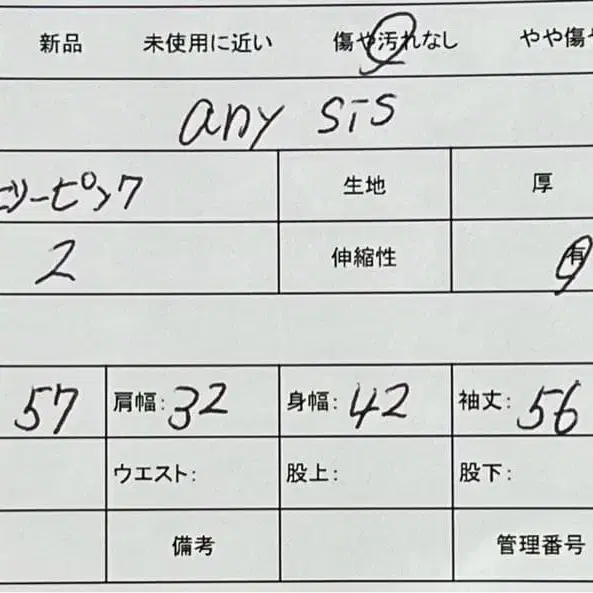 新品 未使用に近い 傷や汚れなし やや傷や
any sis
リーピンク 生地 厚
2 伸縮性 有
57 肩幅: 32 身幅: 42 袖丈: 56
ウエスト: 股上: 股下:
備考 管理番号